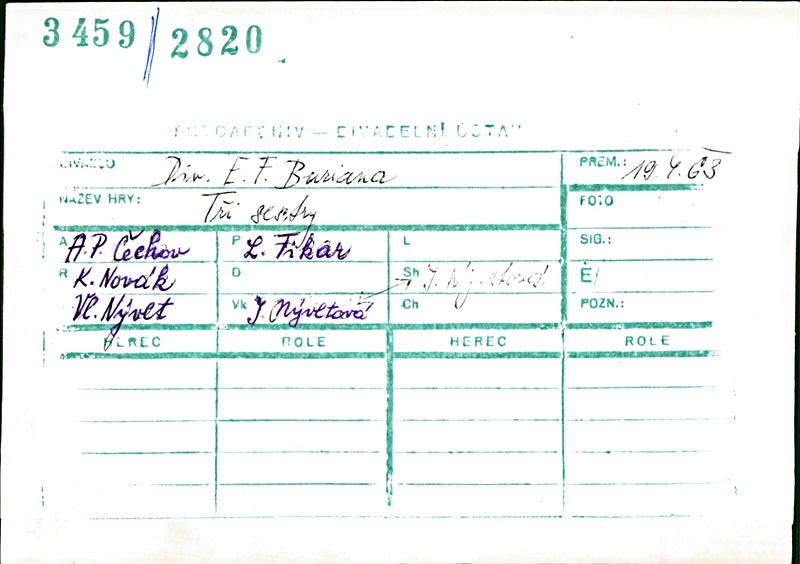 3459/2820
FOTOARCHIV — DIVADELNÍ ÚSTAV
DIVADLO Div. E. F. Buriana PREM.: 19. 4. 63
NÁZEV HRY: Tři sestry FOTO
A A. P. Čechov P L. Fikar L SIG.:
R K. Novák D Sh J. Nývltová Č/
Vl. Nývlt Vk J. Nývltová Ch POZN.:
HEREC ROLE HEREC ROLE